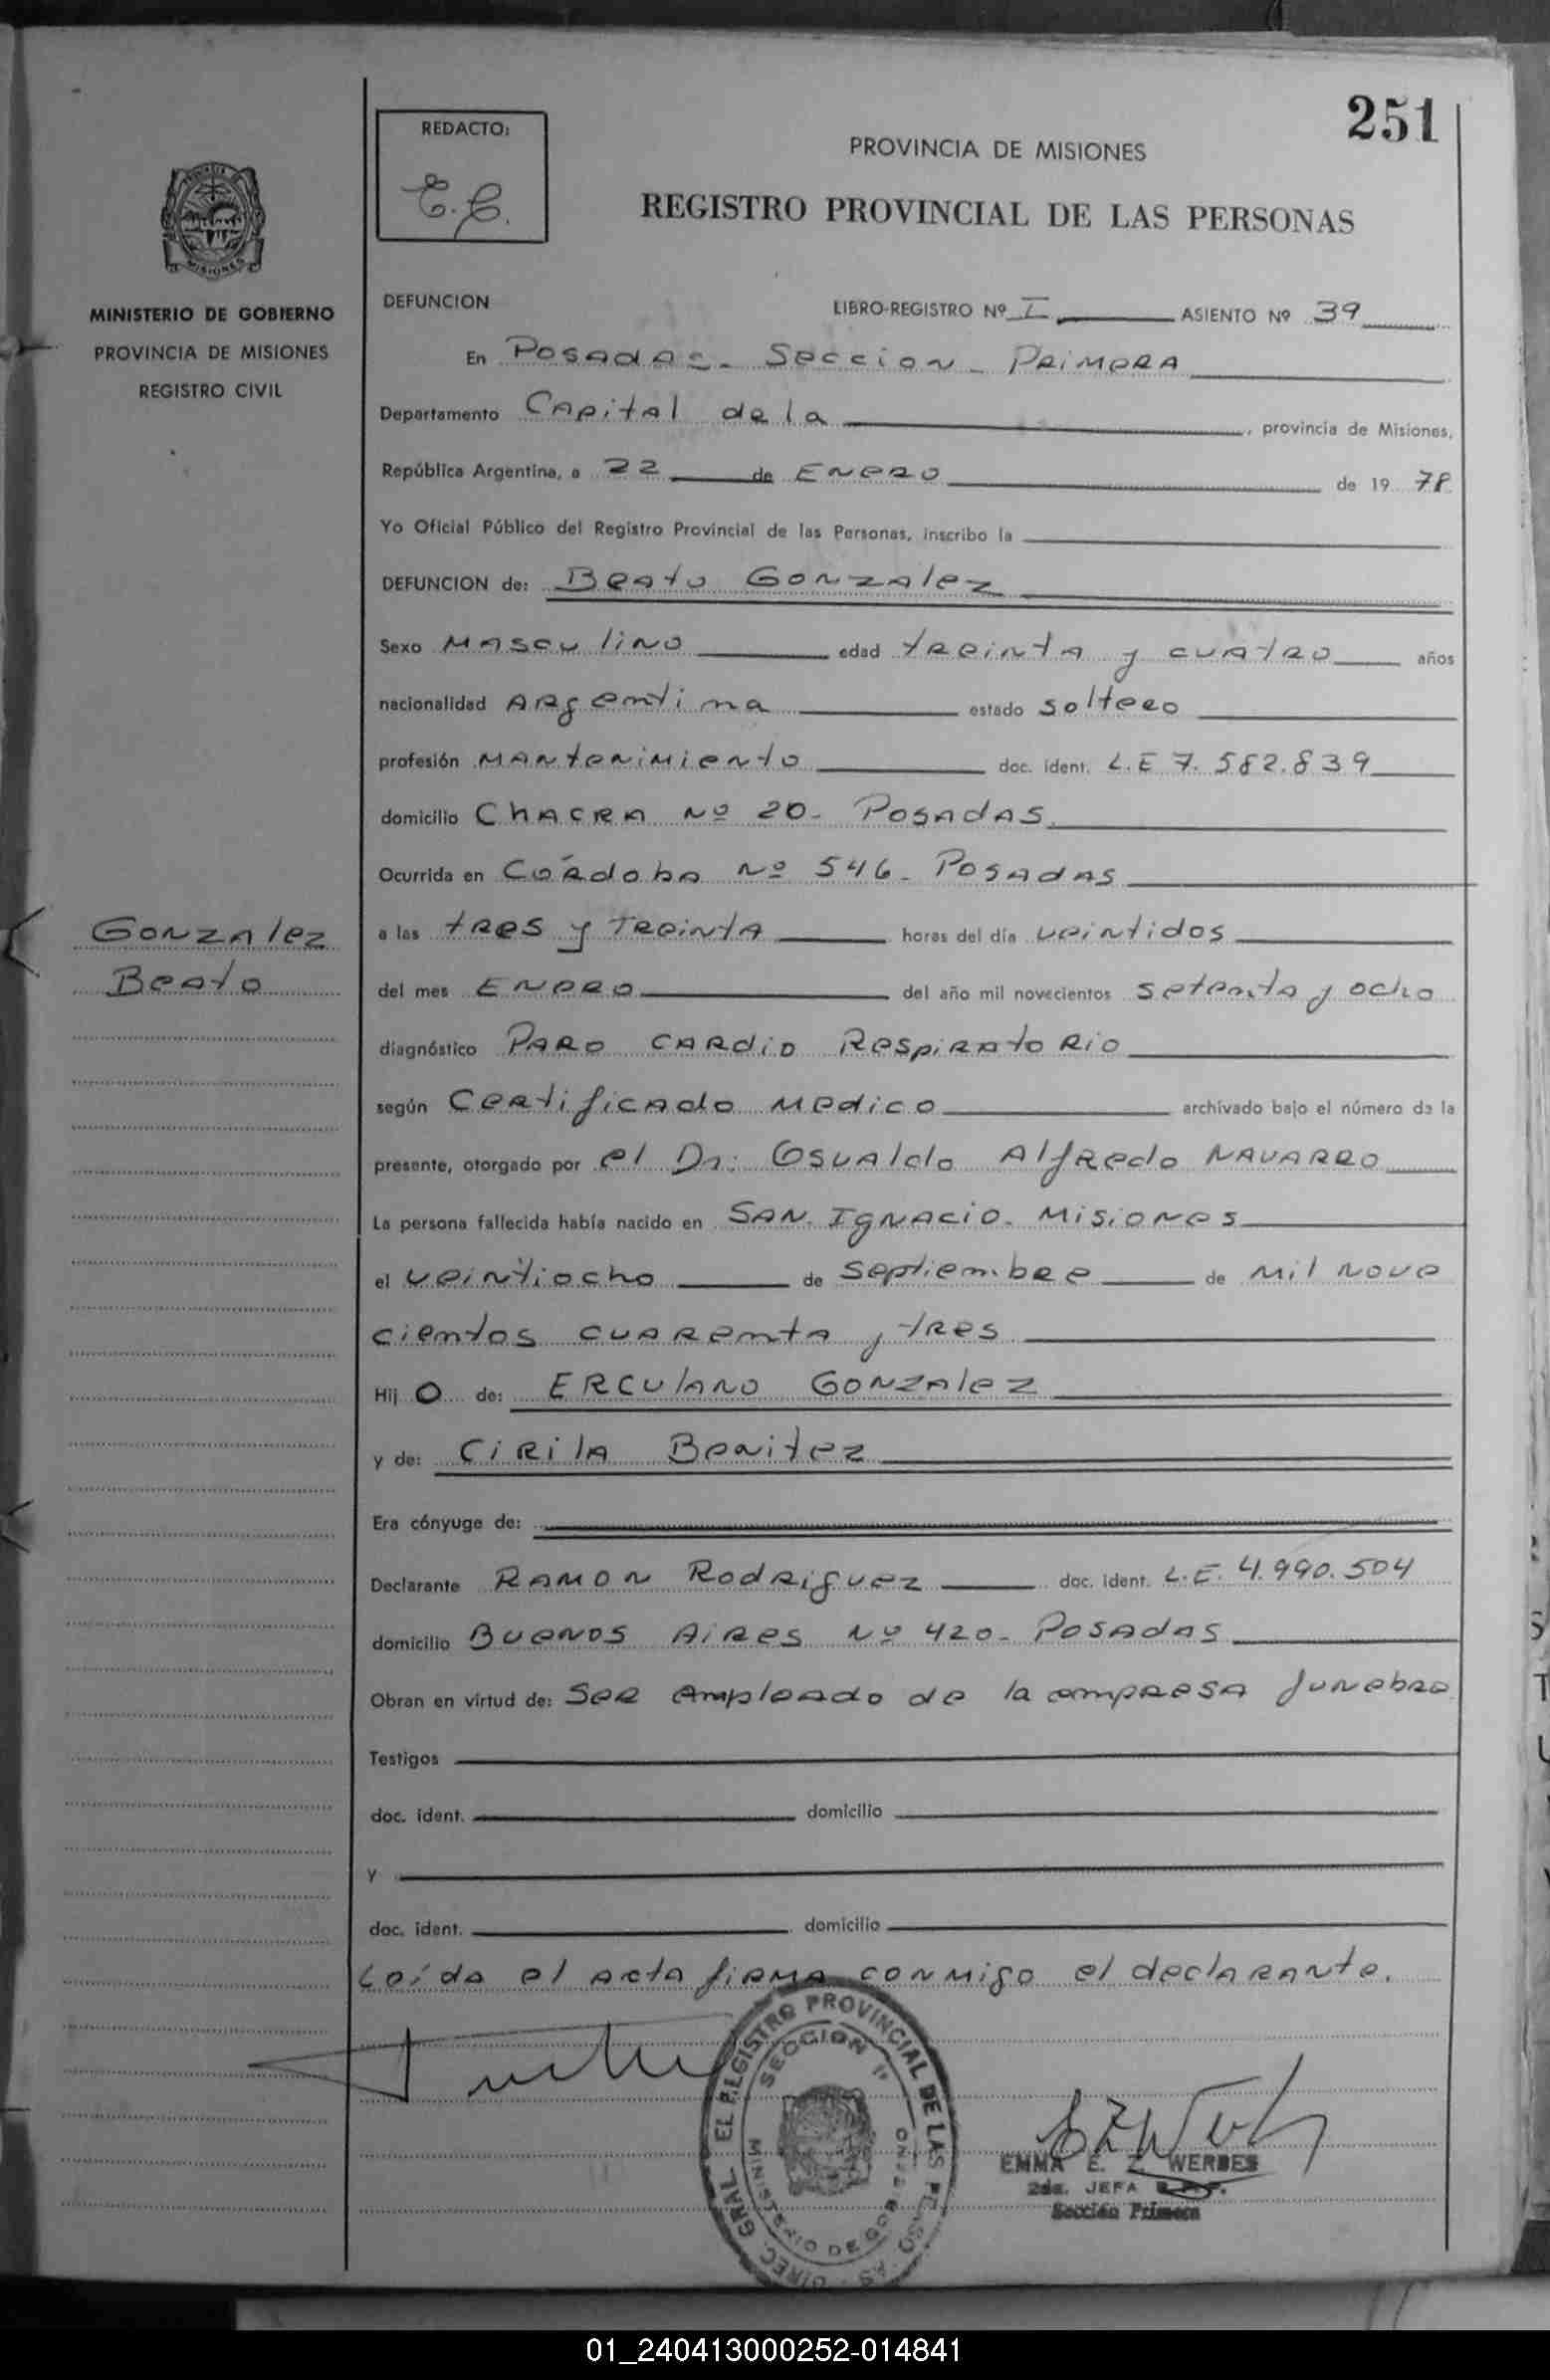 251
REDACTO:
E.C.
PROVINCIA DE MISIONES
REGISTRO PROVINCIAL DE LAS PERSONAS
MISIONES
MINISTERIO DE GOBIERNO
PROVINCIA DE MISIONES
REGISTRO CIVIL
DEFUNCION LIBRO-REGISTRO Nº I ASIENTO Nº 39
En Posadas - Seccion - Primera
Departamento Capital de la , provincia de Misiones,
República Argentina, a 22 de Enero de 19 78
Yo Oficial Público del Registro Provincial de las Personas, inscribo la
DEFUNCION de: Beato Gonzalez
Sexo Masculino edad treinta y cuatro años
nacionalidad Argentina estado soltero
profesión Mantenimiento doc. ident. L.E 7.582.839
domicilio Chacra Nº 20 - Posadas
Ocurrida en Córdoba Nº 546 - Posadas
Gonzalez
Beato
a las tres y Treinta horas del día veintidos
del mes Enero del año mil novecientos setenta y ocho
diagnóstico Paro cardio Respiratorio
según Certificado Medico archivado bajo el número de la
presente, otorgado por el Dr: Osvaldo Alfredo Navarro
La persona fallecida había nacido en San Ignacio - Misiones
el veintiocho de septiembre de Mil nove
cientos cuarenta y tres
Hij o de: Erculano Gonzalez
y de: Cirila Benitez
Era cónyuge de:
Declarante Ramon Rodriguez doc. ident. L.E. 4.990.504
domicilio Buenos Aires Nº 420 - Posadas
Obran en virtud de: Ser empleado de la empresa funebre
Testigos
doc. ident. domicilio
y
doc. ident. domicilio
Leída el acta firma conmigo el declarante.
DIREC. GRAL. EL REGISTRO PROVINCIAL DE LAS PERSONAS
SECCION 1ª
MINISTERIO DE GOBIERNO
EMMA E. Z. WERBES
2da. JEFA
Sección Primera
01_240413000252-014841